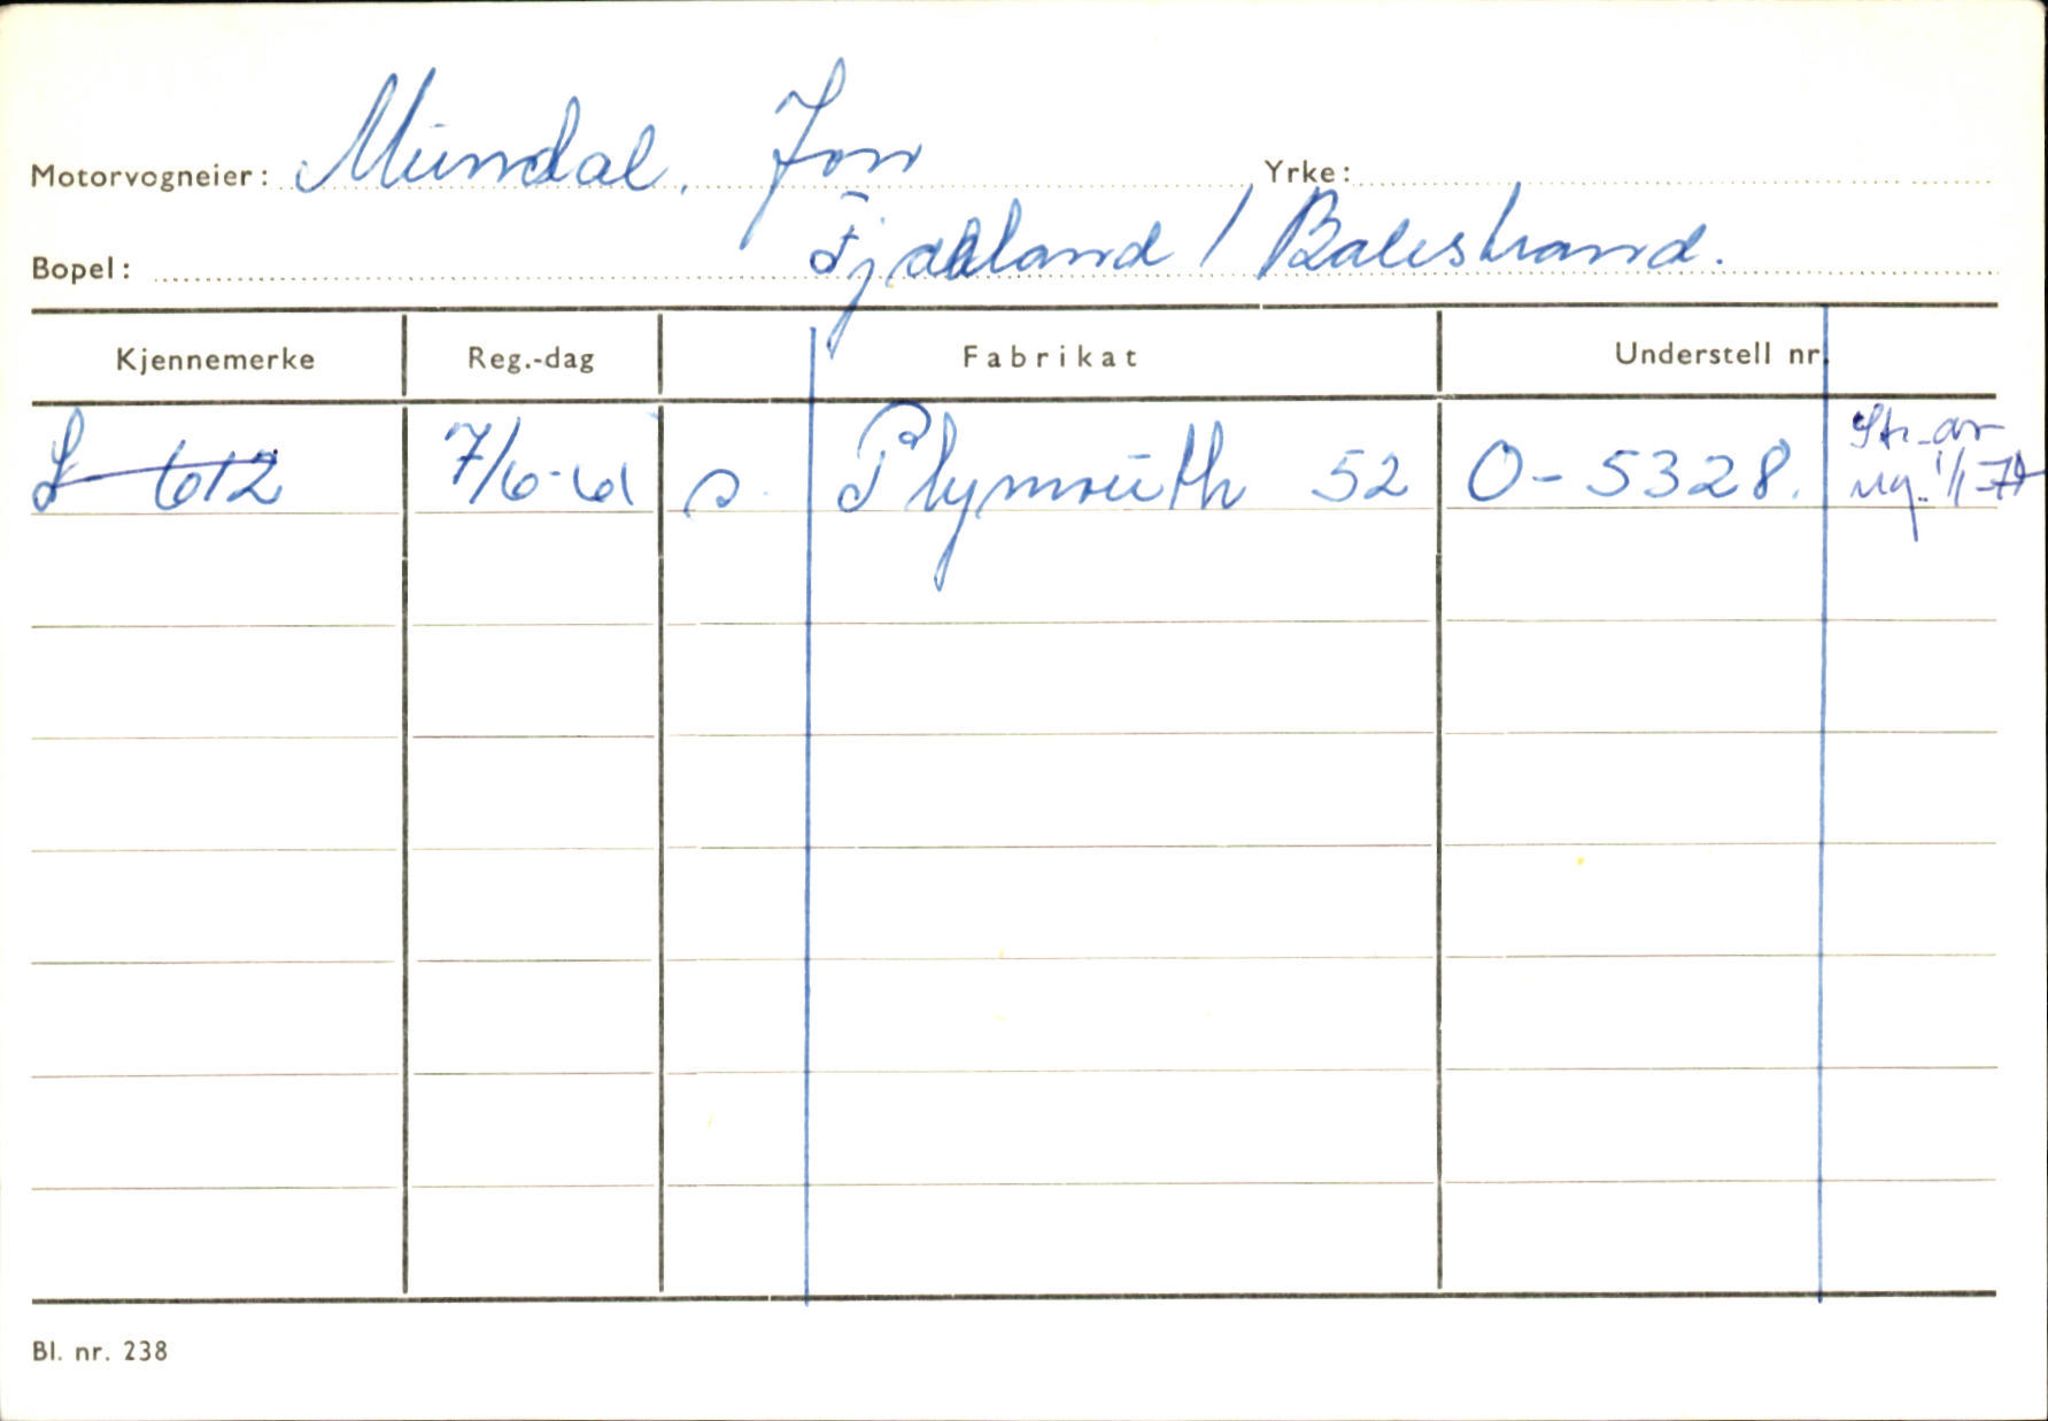 Motorvogneier: Mundal, Jon Yrke:
Bopel: Fjærland / Balestrand.
Kjennemerke Reg.-dag Fabrikat Understell nr.
S 612 7/6-61 s. Plymouth 52 O-5328. Str. av
reg. 1/1-74
Bl. nr. 238